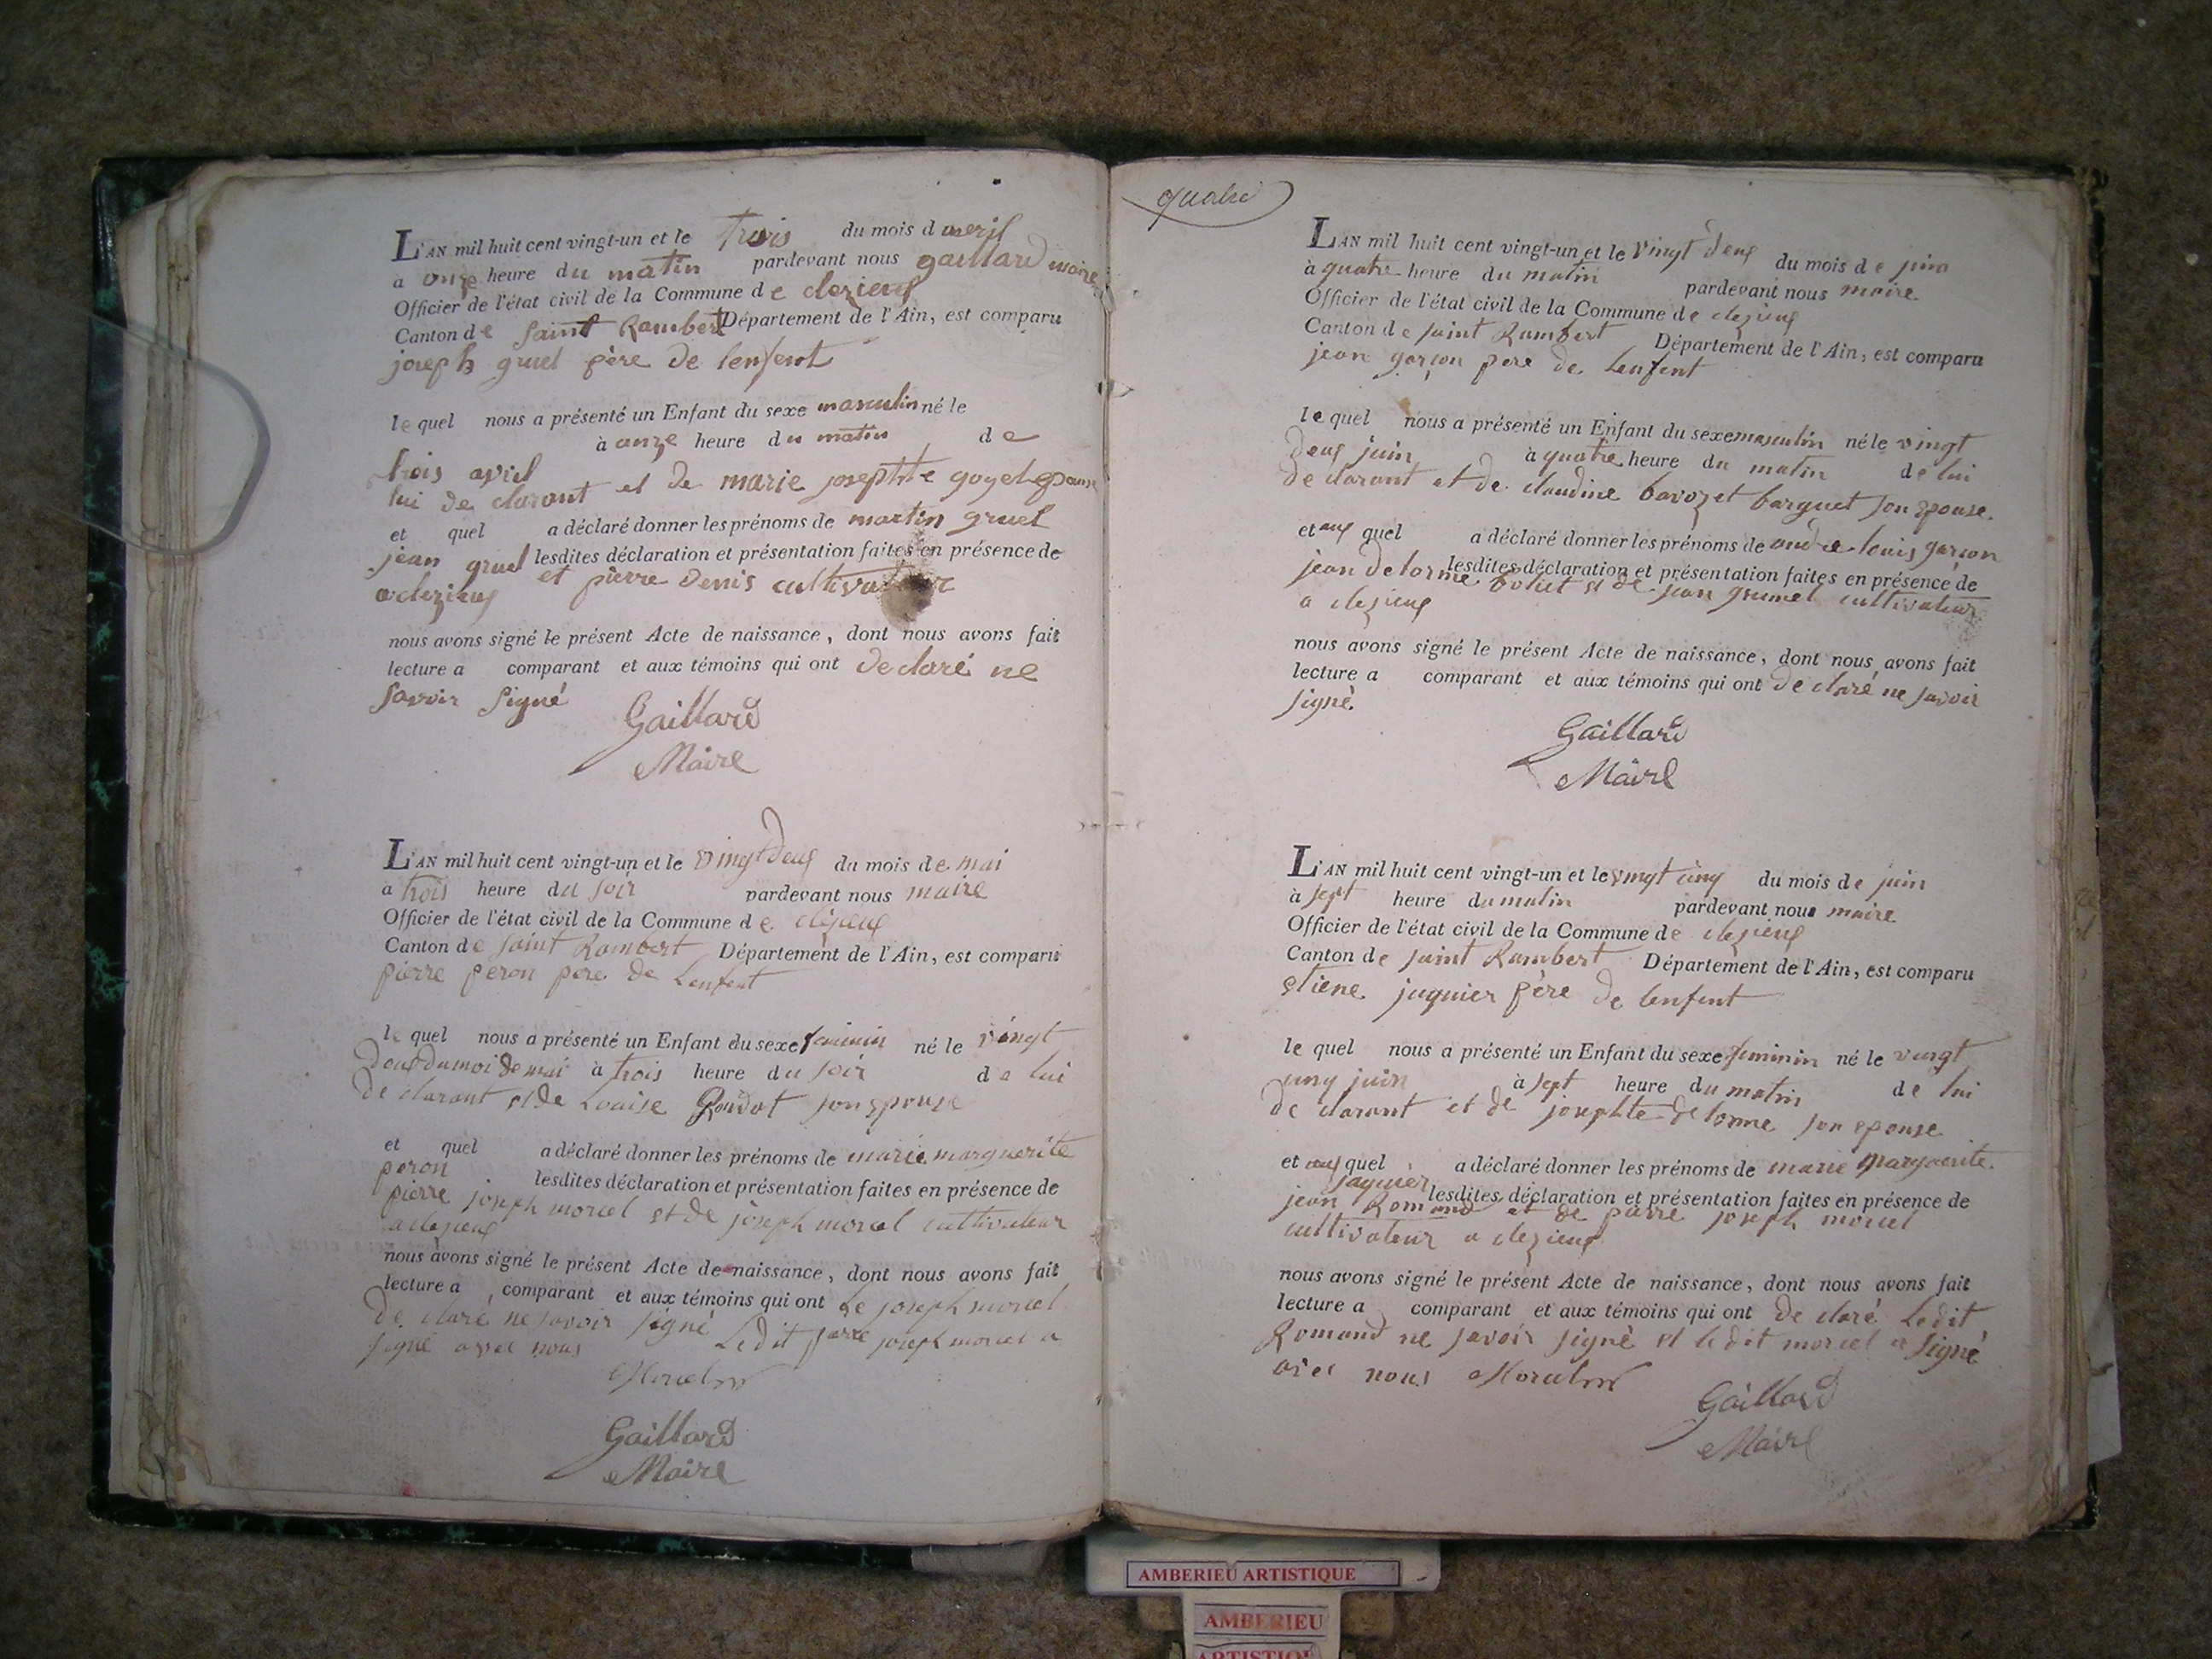 L'AN mil huit cent vingt-un et le trois du mois d averil
a onze heure du matin pardevant nous gaillard maire
Officier de l'état civil de la Commune de clezieux
Canton de saint Rambert Département de l'Ain, est comparu
joseph gruel père de lenfent
le quel nous a présenté un Enfant du sexe masculin né le
trois avril à onze heure du matin de
lui de clarant et de marie josephte goyet epouse
et quel a déclaré donner les prénoms de martin gruel
jean gruel lesdites déclaration et présentation faites en présence de
et pierre denis cultivateur
a clezieux
nous avons signé le présent Acte de naissance, dont nous avons fait
lecture a comparant et aux témoins qui ont de claré ne
savoir signé
Gaillard
Maire
L'AN mil huit cent vingt-un et le vingt deux du mois de mai
a trois heure du soir pardevant nous maire
Officier de l'état civil de la Commune de clezieux
Canton de saint Rambert Département de l'Ain, est comparu
pierre peron pere de Lenfent
le quel nous a présenté un Enfant du sexe feminin né le vingt
deux du moi de mai à trois heure du soir de lui
de clarant et de Louise son epouse
et quel a déclaré donner les prénoms de marie marguerite
peron lesdites déclaration et présentation faites en présence de
pierre joseph morcel et de joseph morcel cultivateur
a clezieux
nous avons signé le présent Acte de naissance, dont nous avons fait
lecture a comparant et aux témoins qui ont Le joseph morcel
de claré ne savoir signé Le dit pierre joseph morcel a
signé avec nous
Morcel
Gaillard
Maire
quatre
L'AN mil huit cent vingt-un et le vingt deux du mois de juin
à quatre heure du matin pardevant nous maire
Officier de l'état civil de la Commune de clezieux
Canton de saint Rambert Département de l'Ain, est comparu
jean garson pere de Lenfent
le quel nous a présenté un Enfant du sexe masculin né le vingt
deux juin à quatre heure du matin de lui
de clarant et de claudine bavozet barguet son epouse
et aux quel a déclaré donner les prénoms de andre louis garson
lesdites déclaration et présentation faites en présence de
jean delorme bolut et de jean grumel cultivateur
a clezieux
nous avons signé le présent Acte de naissance, dont nous avons fait
lecture a comparant et aux témoins qui ont de claré ne savoir
signé
Gaillard
Maire
L'AN mil huit cent vingt-un et le vingt cinq du mois de juin
à sept heure du matin pardevant nous maire
Officier de l'état civil de la Commune de clezieux
Canton de saint Rambert Département de l'Ain, est comparu
etiene juquier père de lenfent
le quel nous a présenté un Enfant du sexe feminin né le vingt
cinq juin à sept heure du matin de lui
de clarant et de josephte de lorme son epouse
et aux quel a déclaré donner les prénoms de marie marguerite
jaquier lesdites déclaration et présentation faites en présence de
jean Romand et de pierre joseph morcel
cultivateur a clezieux
nous avons signé le présent Acte de naissance, dont nous avons fait
lecture a comparant et aux témoins qui ont de claré Ledit
Romand ne savoir signé et le dit morcel a signé
avec nous Morcel
Gaillard
Maire
AMBERIEU ARTISTIQUE
AMBERIEU
ARTISTIQUE